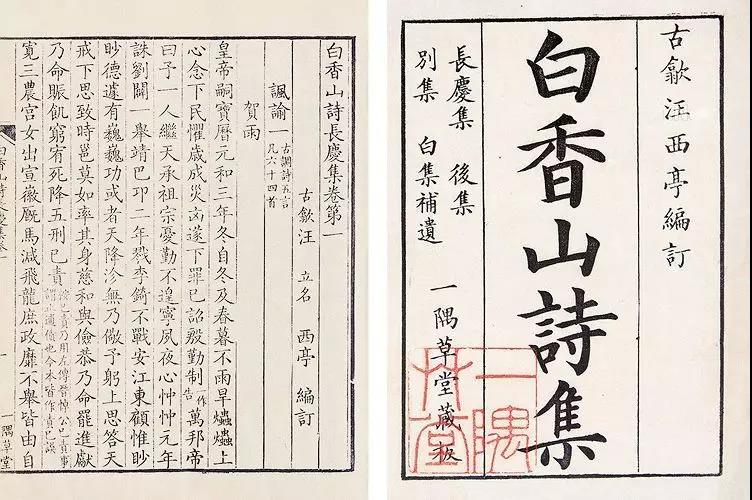 古歙汪西亭編訂
白香山詩集
長慶集 後集
別集 白集補遺
一隅草堂藏板
一隅草堂
白香山詩長慶集卷第一
古歙汪 立名 西亭 編訂
諷諭一 古調詩五言 凡六十四首
賀雨
皇帝嗣寶曆元和三年冬自冬及春暮不雨旱爞爞上
心念下民懼歲成災凶遂下罪已詔殷勤制一作告萬邦帝
曰予一人繼天承祖宗憂勤不遑寧夙夜心忡忡元年
誅劉闢一舉靖巴卭二年戮李錡不戰安江東顧惟眇
眇德遽有巍巍功或者天降沴無乃儆予躬上思答天
戒下思致時邕莫如率其身慈和與儉恭乃命罷進獻
乃命賑飢窮宥死降五刑已責 已責乃用左傳晉悼公已責事 債也今本皆作責已誤
寬三農宮女出宣徽厩馬減飛龍庶政靡不舉皆由自
一隅草堂